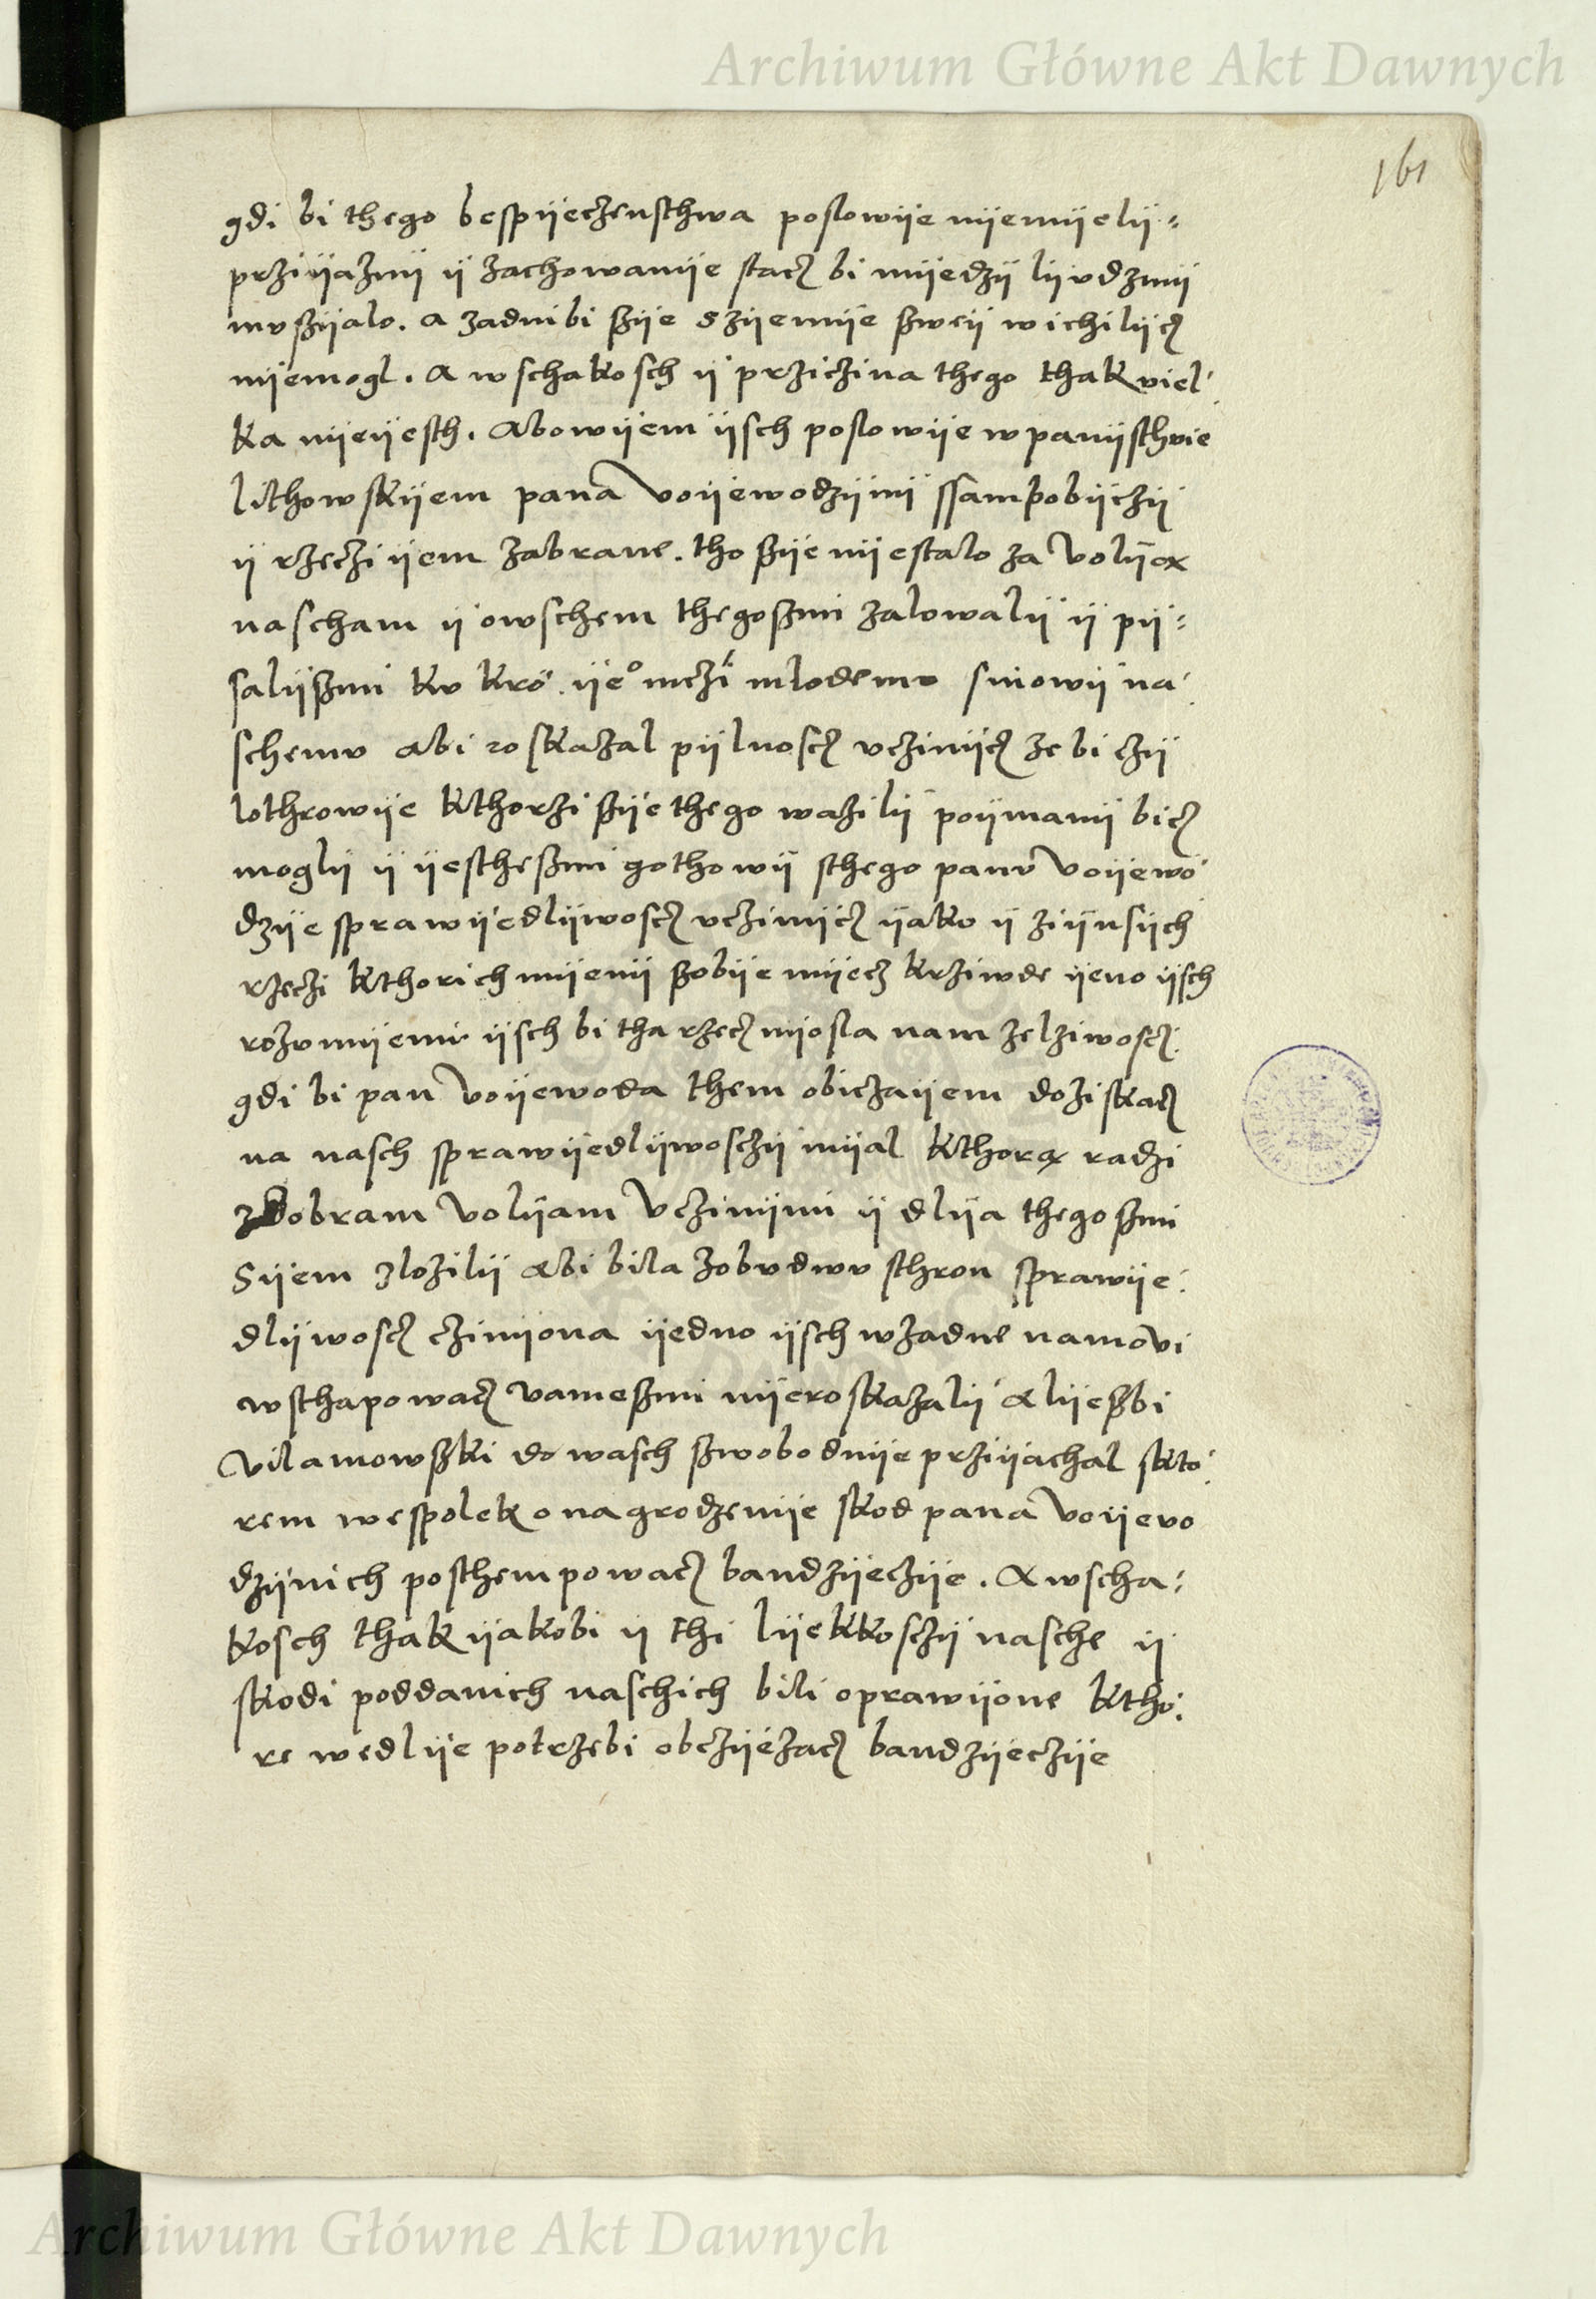 Archiwum Główne Akt Dawnych
161
gdi bi thego bespÿeczenschwa poslowÿe nÿemÿelÿ=
przÿÿaznÿ ÿ zachowanÿe stacz bi mÿedzÿ lÿvdzmÿ
mvszÿalo. a zadni bi szÿe s zÿemÿe szweÿ wichilÿcz
nÿemogl. A wschakosch ÿ przÿczina thego thak viel
ka nÿeÿesth. Abowÿem ÿsch poslowÿe w panÿsthvie
lithowskÿem pana voÿewodzÿnÿ ssam pobÿczÿ
ÿ rzeczi ÿem zabrane. tho szÿe nÿestalo za volÿą
nascham ÿ owschem thegoszmi zalowalÿ ÿ pÿ=
salÿszmi kv kro. ÿeo mczi mlodemv sinowÿ na
schemv abi roskazal pÿlnoscz vczinÿcz ze bi czÿ
lothrowÿe kthorzi szÿe thego wazilÿ poÿmanÿ bicz
moglÿ ÿ ÿestheszmi gothowÿ sthego panv voÿewo
dzÿe sprawÿedlÿwoscz vczinÿcz ÿako ÿ ziÿnsÿch
rzeczi kthorich mÿenÿ szobÿe mÿecz krziwde ÿeno ÿsch
rozvmÿemi ÿsch bi tha rzecz nÿosla nam zelziwoscz
gdi bi pan voÿewoda them obiczaÿem doziskacz
na nasch sprawÿedlÿwosczÿ mÿal kthorą radzi
zdobram volÿam vczinÿmi ÿ dlÿa thegoszmi
Sÿem zlozilÿ abi bila zobvdwv sthron sprawÿe
dlÿwoscz czinÿona ÿedno ÿsch wzadne namovi
wsthapowacz vameszmi nÿeroskazalÿ alÿeszbi
vilamowszki do wasch szwobodnÿe przÿÿachal skto
rem wespolek o nagrodzenÿe skod pana voÿevo
dzÿnich posthempowacz bandzÿeczÿe. A wscha=
kosch thak ÿakobi ÿ thi lÿekkosczÿ nasche ÿ
skodi poddanich naschich bili oprawÿone ktho
re wedlÿe potrzebi obczÿezacz bandzÿeczÿe
Archiwum Główne Akt Dawnych